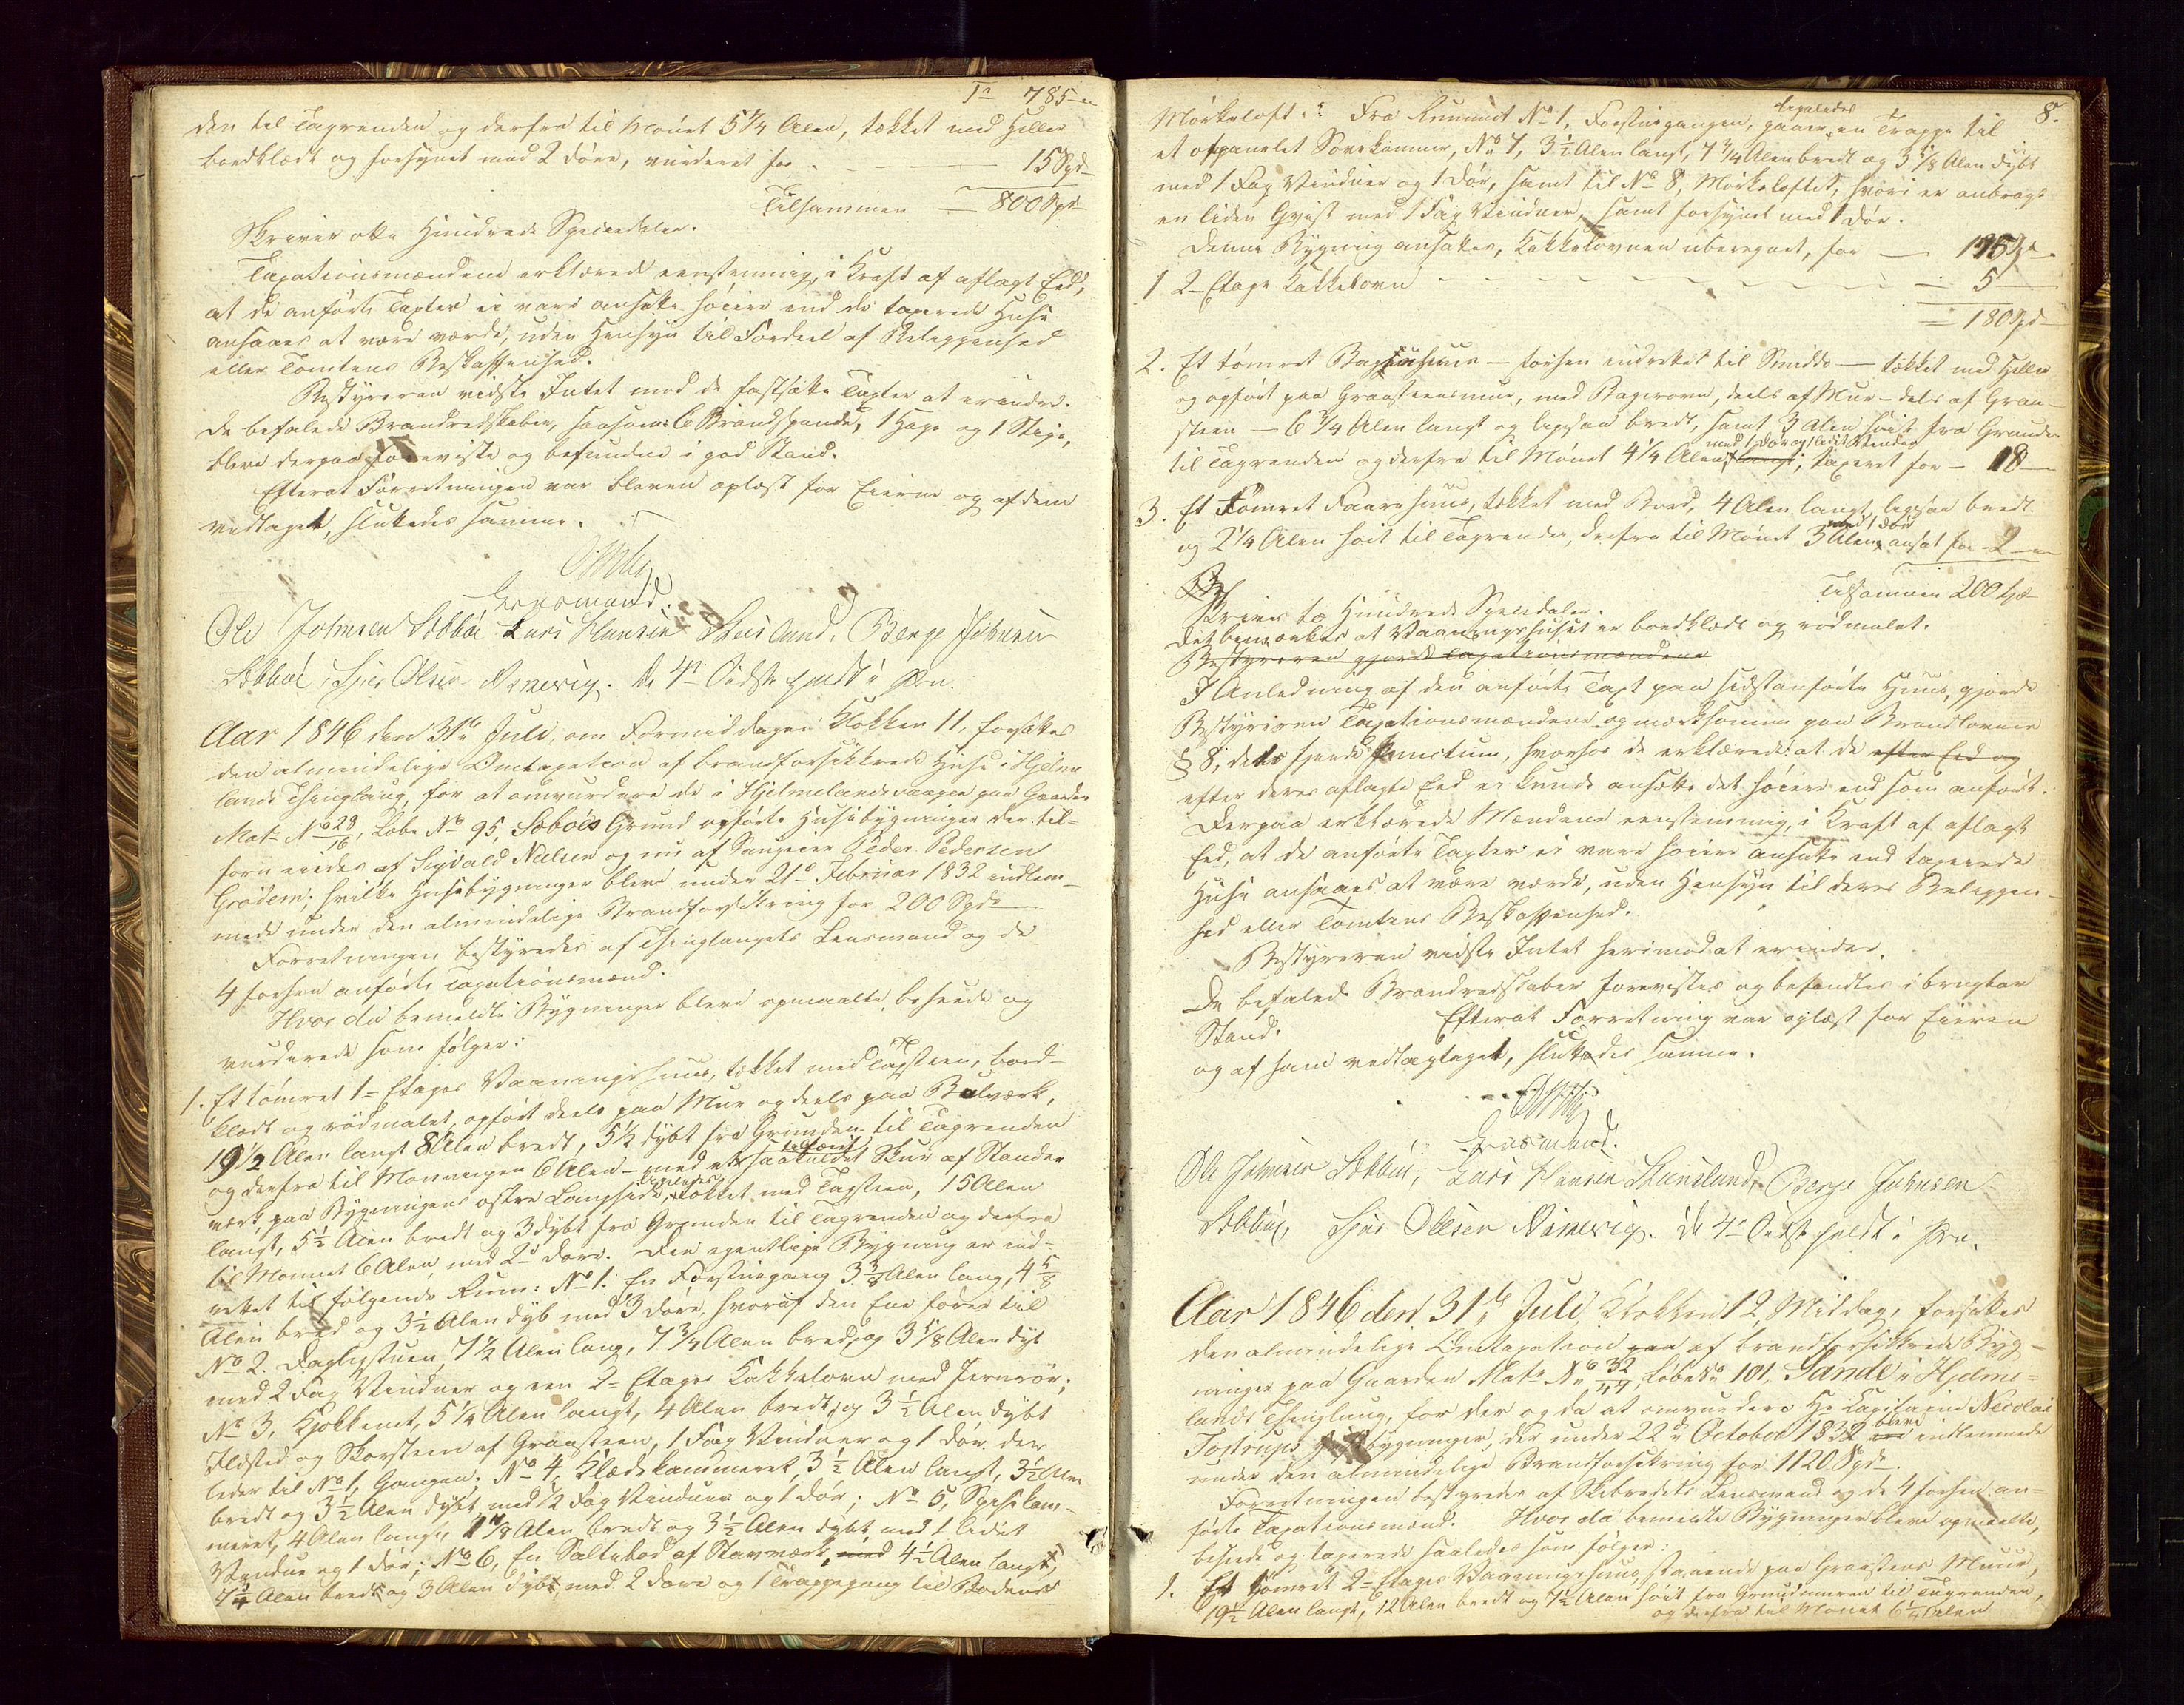 1n 785 "
den til Tagrenden og derfra til Mønet 5 1/4 Alen, tækket med Heller
bordklædt og forsynet med 2 Døre, vurderet for - - - 15 Spd
Tilsammen - 800 Spd
Skriver otte Hundrede Speciedaler.
Taxationsmændene erklærede eenstemmig, i Kraft af aflagt Eed,
at de anførte Taxter ei vare ansatte høiere end de taxerede Huse
ansaaes at være værdt, uden Hensyn til Fordeel af Beliggenhed
eller Tomtens Beskaffenhed.
Bestyreren vidste Intet mod de fastsatte Taxter at erindre.
De befalede Brandredskaber, saasom: 6 Brandspande, 1 Hage og 1 Stige,
bleve derpaa foreviste og befundne i god Stand.
Efterat Forretningen var bleven oplæst for Eieren og af dem
vedtaget, sluttedes samme.
Lensmand.
Ole Johnsen Sæbbøe Lars Hansen Steinslund, Berge Johnsen
Sæbbøe, Sjur Olsen Nønevig. De 4n Sidste holdt i Pen.
Aar 1846 den 31te Juli, om Formiddagen Klokken 11, forsattes
den almindelige Omtaxation af brandforsikkrede Huse i Hjelme
lands Thinglaug, for at omvurdere de i Hjelmelandsvaagen paa Gaarden
Mats No 28/16, Løbe No 95, Sæbøes Grund opførte Huusbygninger der til=
forn eiedes af Sigvald Nielsen og nu af Peder Pedersen
Grødem; hvilke Huusbygninger bleve under 21de Februar 1832 indlem-
mede under den almindelige Brandforsikring for 200 Spd
Forretningen bestyredes af Thinglaugets Lensmand og de
4 forhen anførte Taxationsmænd.
Hvor da bemeldte Bygninger bleve opmaalte, beseede og
vurderede som følger:
1. Et tømret 1= Etages Vaaningshuus, tækket med Tagsteen, bord-
klædt og rødmalet, opført deels paa Muur og deels paa Bulværk,
19 1/2 Alen langt 8 Alen bredt, 5 1/2 dybt fra Grunden til Tagrenden
og derfra til Mønningen 6 Alen - med et saakaldet Skur af Stander
værk, paa Bygningens østre Langside, tækket med Tagsteen, 15 Alen
langt, 5 1/2 Alen bredt og 3 dybt fra Grunden til Tagrenden og derfra
til Mønnet 6 Alen, med 2de Døre. Den egentlige Bygning er ind=
rettet til følgende Rum: No 1. En Forstuegang 3 3/8 Alen lang, 4 5/8
Alen bred og 3 1/2 Alen dyb med 3 Døre, hvoraf den Ene fører til
No 2. Dagligstuen, 7 1/2 Alen lang, 7 3/4 Alen bred, og 3 5/8 Alen dyb
med 2 Fag Vinduer og een 2= Etages Kakkelovn med Jernrør;
No 3, Kjøkkenet, 5 1/4 Alen langt, 4 Alen bredt, og 3 1/2 Alen dybt
Ildsted og Skorsteen af Graasteen, 1 Fag Vinduer og 1 Dør der
leder til No 1, Gangen; No 4, Klædekammeret, 3 1/2 Alen langt, 3 1/2 Alen
bredt og 3 1/2 Alen dybt, med 1/2 Fag Vinduer og 1 Dør; No 5, Spisekam-
meret, 4 Alen langt, Alen bredt og 3 1/2 Alen dybt med 1 lidet
Vindue og 1 Dør; No 6, En Saltebod af Stavværk, med 4 1/2 Alen langt,
Alen bredt og 3 Alen dybt, med 2 Døre og 1 Trappegang til Bodens
8.
ligeledes
Mørkeloft: Fra Rummet No 1, Forstuegangen, gaaer en Trappe til
et afpanelet Sovekammer, No 7, 3 1/2 Alen langt, 7 3/4 Alen bredt og 3 1/8 Alen dybt
med 1 Fag Vinduer og 1 Dør, samt til No 8, Mørkeloftet, hvori er anbragt
en liden Qvist med 1 Fag Vinduer, samt forsynet med 1 Dør.
Denne Bygning ansattes, Kakkelovnen uberegnet, for - 175 Spd
1 2-Etage Kakkelovn - - - 5
= 180 Spd
2. Et tømret - forhen indrettet til Smidde - tækket med Heller
og opført paa Graasteensmuur, med Bagerovn, deels af Mur - dels af Graa-
steen - 6 3/4 Alen langt og ligesaa bredt, samt 3 Alen høit fra Grunden
med 1 Dør og 1 lidet Vindue
til Tagrenden og derfra til Mønet 4 1/4 Alen, langt, taxeret for - 18
3. Et tømret Faarehuus, tækket med Bord, 4 Alen langt, ligesaa bredt
med 1 Dør
og 2 1/4 Alen høit til Tagrenden, derfra til Mønet 3 Alen, ansat for - 2
Tilsammen 200 Spd
Skriver to Hundrede Speciedaler.
Det bemærkes at Vaaningshuset er bordklædt og rødmalet.
Bestyreren gjorde Taxationsmændene
I Anledning af den anførte Taxt paa sidstanførte Huus, gjorde
Bestyreren Taxationsmændene opmærksomme paa Brandlovens
§ 8, dets fjerde Punctum, hvorfor de erklærede: at de efter Eed og
efter deres aflagte Eed ei kunde ansætte det høiere end som anført.
Derpaa erklærede Mændene eenstemmig, i Kraft af aflagt
Eed, at de anførte Taxter ei vare høiere ansatte end taxerede
Huse ansaaes at være værdt, uden Hensyn til deres Beliggen-
hed eller Tomtens Beskaffenhed.
Bestyreren vidste Intet herimod at erindre.
De befalede Brandredskaber forevistes og befandtes i brugbar
Stand. Efterat Forretning var oplæst for Eieren
og af ham vedtaget, sluttedes samme.
Lensmand.
Ole Johnsen Sæbbøe, Lars Hansen Steinslund, Berge Johnsen
Sæbbøe, Sjur Olsen Nønevig. De 4n Sidst holdt i Pen.
Aar 1846 den 31te Juli, Klokken 12, Middag, forsattes
den almindelige Omtaxation paa af brandforsikkrede Byg-
ninger paa Gaarden Mats No 32/44, Løbe No 101, Sande i Hjelme=
lands Thinglaug, for der og da at omvurdere Hr Capitaine Nicolai
Tostrups Huusbygninger, der under 22de October 1832 bleve indlemmede
under den almindelige Brandforsikring for 1120 Spd.
Forretningen bestyredes af Skibredets Lensmand og de 4 forhen an=
førte Taxationsmænd. Hvor da bemeldte Bygninger bleve opmaalte,
beseede og taxerede saaledes som følger:
1. Et tømret 2= Etages Vaaningshuus, staaende paa Graasteens Muur,
19 1/2 Alen langt, 12 Alen bredt og 7 1/2 Alen høit fra Grundmuren til Tagrenden,
og derfra til Mønet 6 1/4 Alen